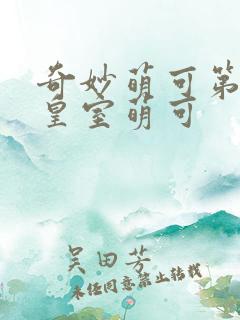 奇妙萌可第
皇室萌可
吴田芳
未经同意禁止转载